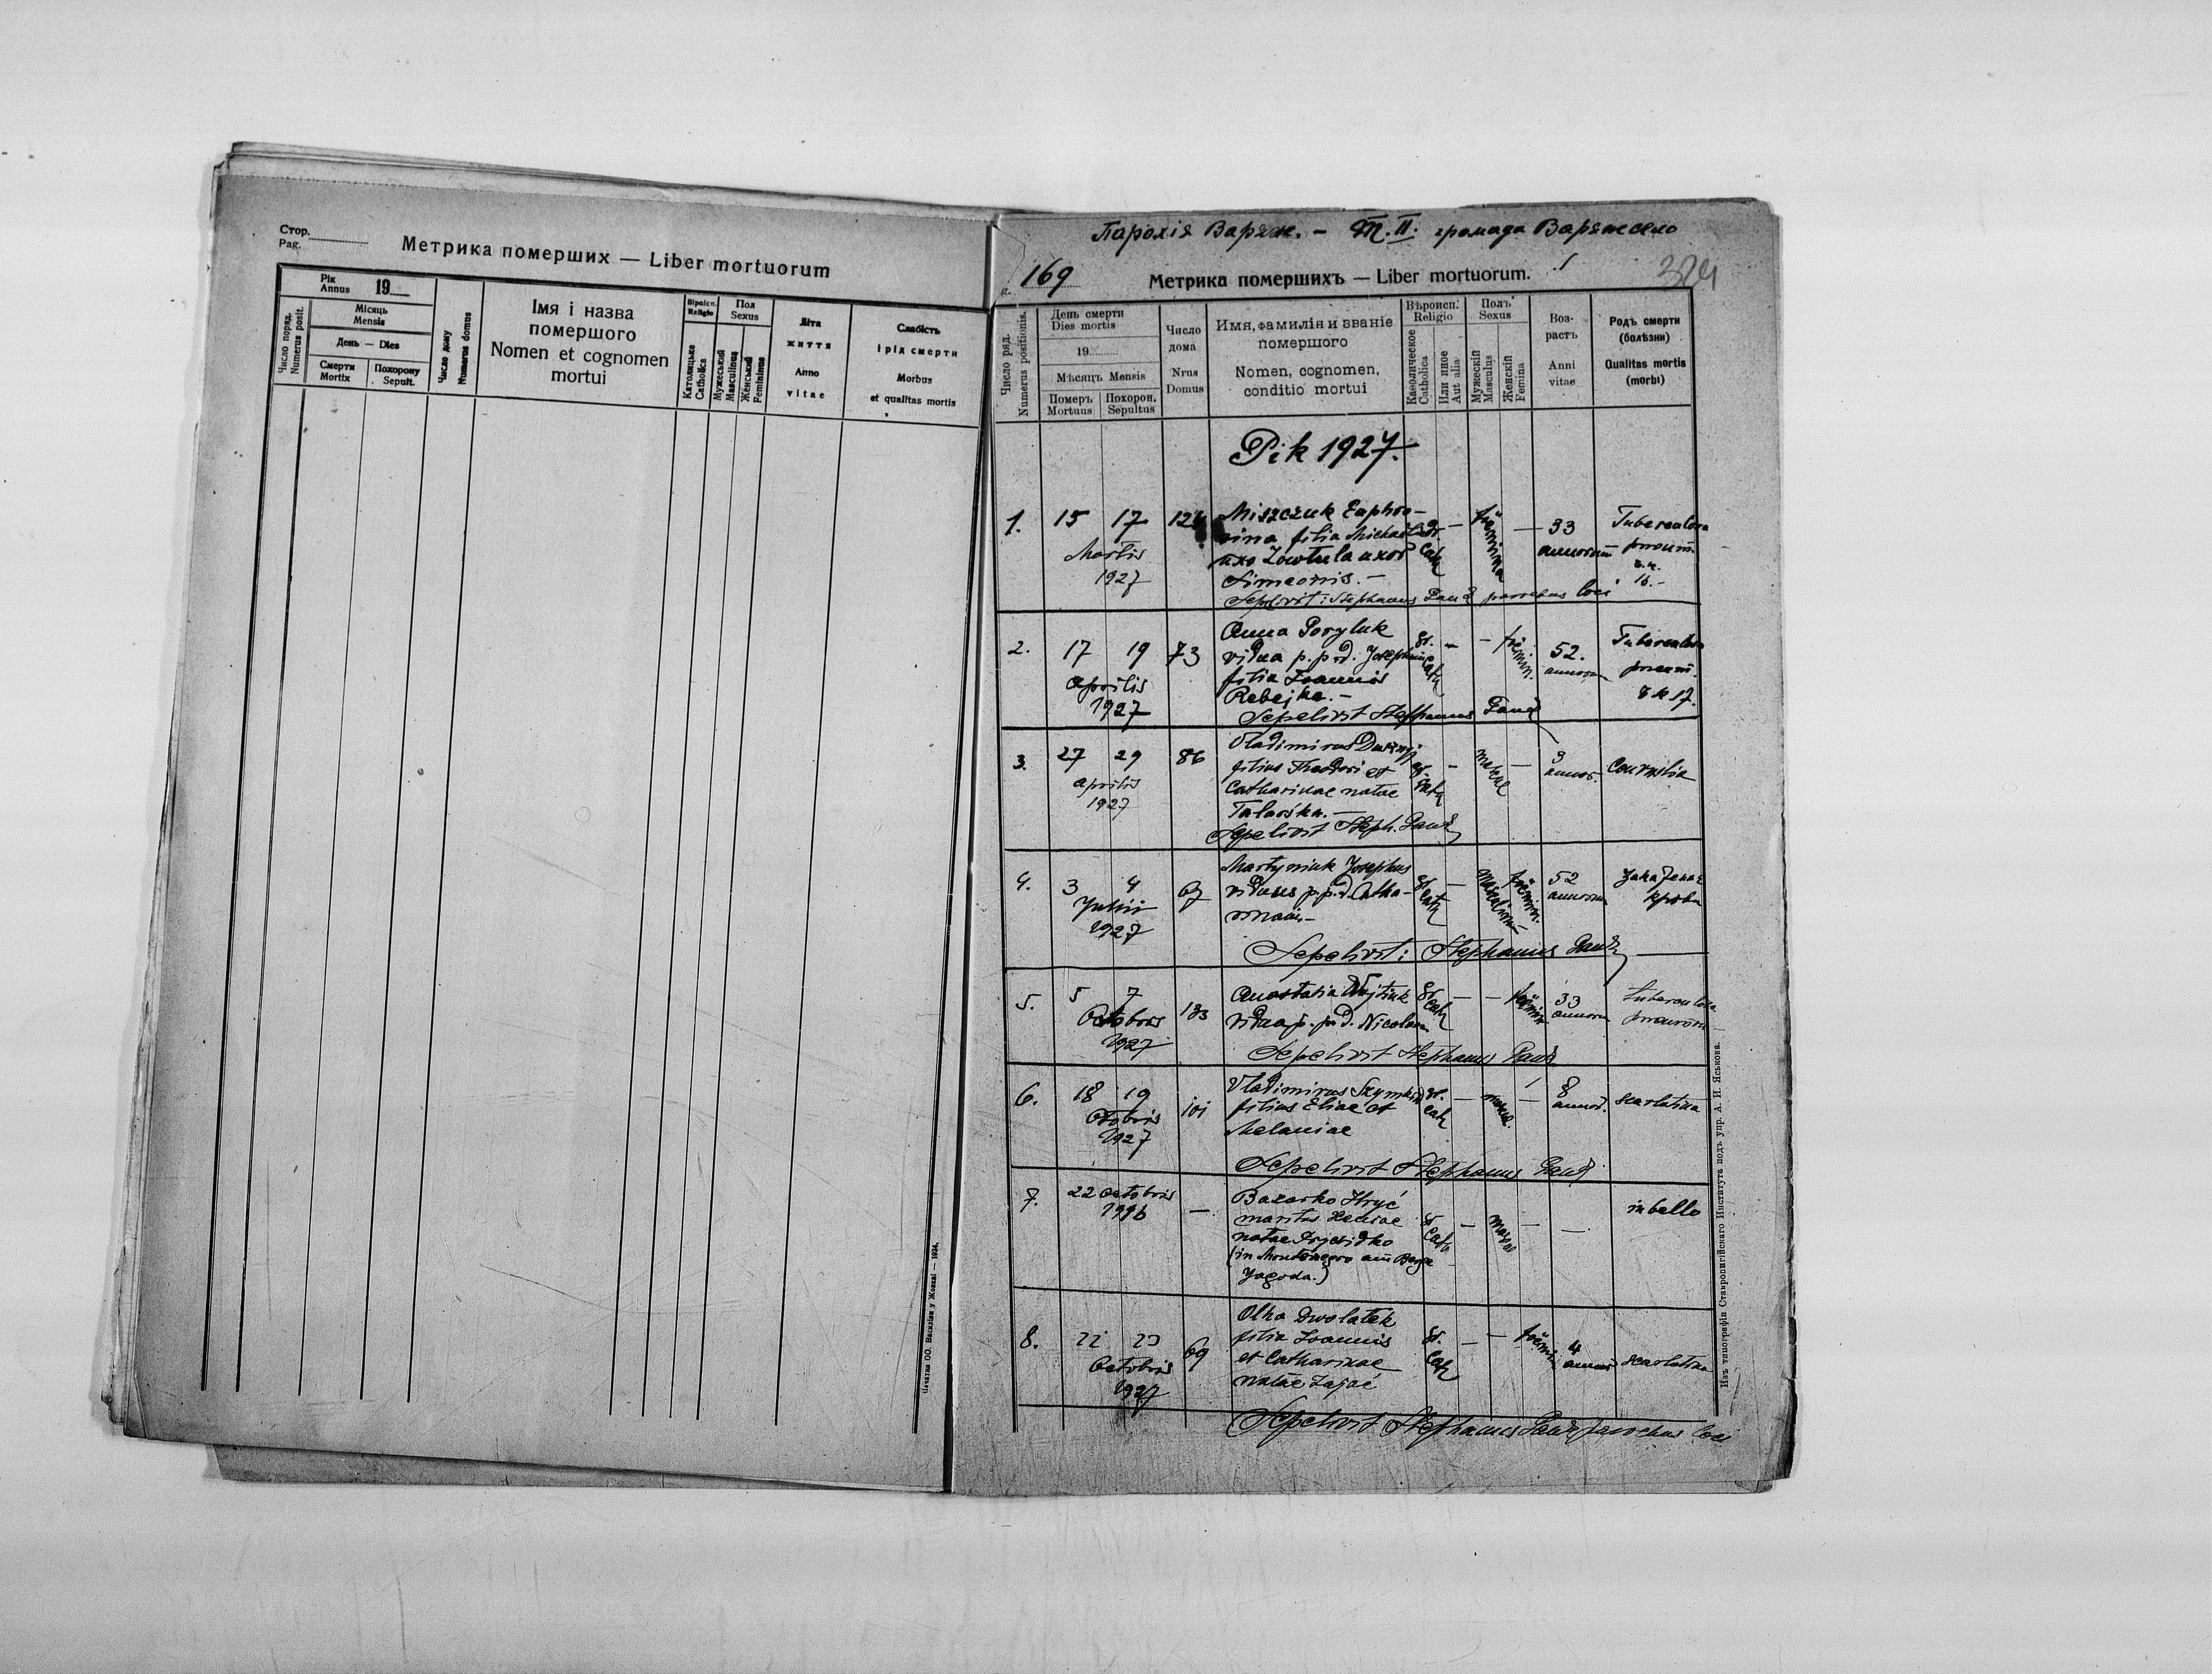 Стор.
Pag.
Метрика померших — Liber mortuorum
Рік
Annus 19
Число поряд.
Numerus posit.
Місяць
Mensis
День — Dies
Смерти
Mortix
Похорону
Sepult.
Число дому
Numerus domus
Імя і назва
помершого
Nomen et cognomen
mortui
Віроісп.
Religio
Католицьке
Catholica
Пол
Sexus
Мужеський
Masculinus
Женський
Femininus
Літа
життя
Anno
vitae
Слабість
і рід смерти
Morbus
et qualitas mortis
Печатня ОО. Василіян у Жовкві — 1924.
Парохія Варяж. — Т. II. громада Варяж село
169
324
Метрика помершихъ — Liber mortuorum.
Число ряд.
Numerus positionis.
День смерти
Dies mortis
19
Мѣсяцъ Mensis
Померъ
Mortuus
Похорон.
Sepultus
Число
дома
Nrus
Domus
Имя, фамилія и званіе
помершого
Nomen, cognomen,
conditio mortui
Вѣроисп.
Religio
Каѳолическое
Catholica
Или иное
Aut alia
Полъ
Sexus
Мужескій
Masculus
Женскій
Femina
Воз-
растъ
Anni
vitae
Родъ смерти
(болѣзни)
Qualitas mortis
(morbi)
Рік 1927.
1. 15 17
Martis
1927
Miszczuk Euphro-
sina filia Michaelis
Zowtula uxor
Simeonis. —
Sepelivit: Stephanus parochus loci
33
annorum
Tuberculosa
pneum.
2. 17 19 73
Aprilis
1927
Anna Poryluk
vidua p. p. d. Josephum
filia Ioannis
Rebejka. —
Sepelivit Stephanus
Gr.
Cath
femin.
52.
annorum
Tuberculosa
pneum.
3. 27 29 86
Aprilis
1927
Vladimirus
filius Theodori et
Catharinae natae
Talarska. —
Sepelivit Steph.
Gr.
Cath
mascul
3
annor.
4. 3 4 67
1927
Martyniuk Josephus
viduus p. p. d. Catha-
rinam —
Sepelivit: Stephanus
Gr.
Cath
52
annorum
Закаженє
крови
5. 5 7 123
Octobris
1927
Anastasia Wojtiuk
vidua p. p. d. Nicolaum
Sepelivit Stephanus
Gr.
Cath
femin
33
annorum
tuberculosa
pneumon
6. 18 19 101
Octobris
1927
Vladimirus
filius Eliae et
Melaniae
Sepelivit Stephanus
Gr.
Cath
mascul.
8
annor.
scarlatina
7. 22 octobris —
1916
Bazarko Hryć
maritus
natae
(in Montenegro am Berge
Jagoda.)
Gr
Cath
in bello
8. 22 23 69
Octobris
1927
Olha Dwolatek
filia Ioannis
et Catharinae
natae Zajac
Sepelivit Stephanus parochus loci
Gr.
Cath
femin
4
annor
scarlatina
Изъ типографіи Ставропигійского Института подъ упр. А. И. Яськова.